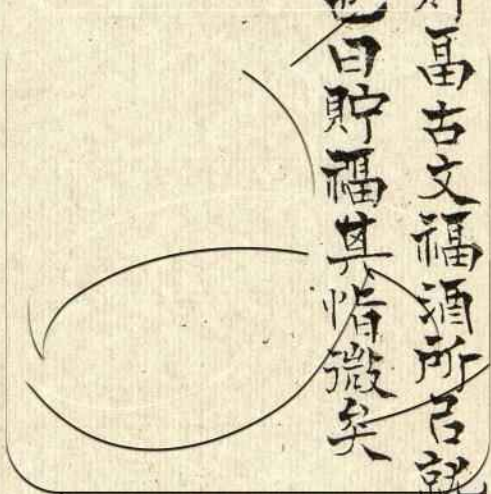 畐古文福酒所㠯就
也曰貯福其恉微矣